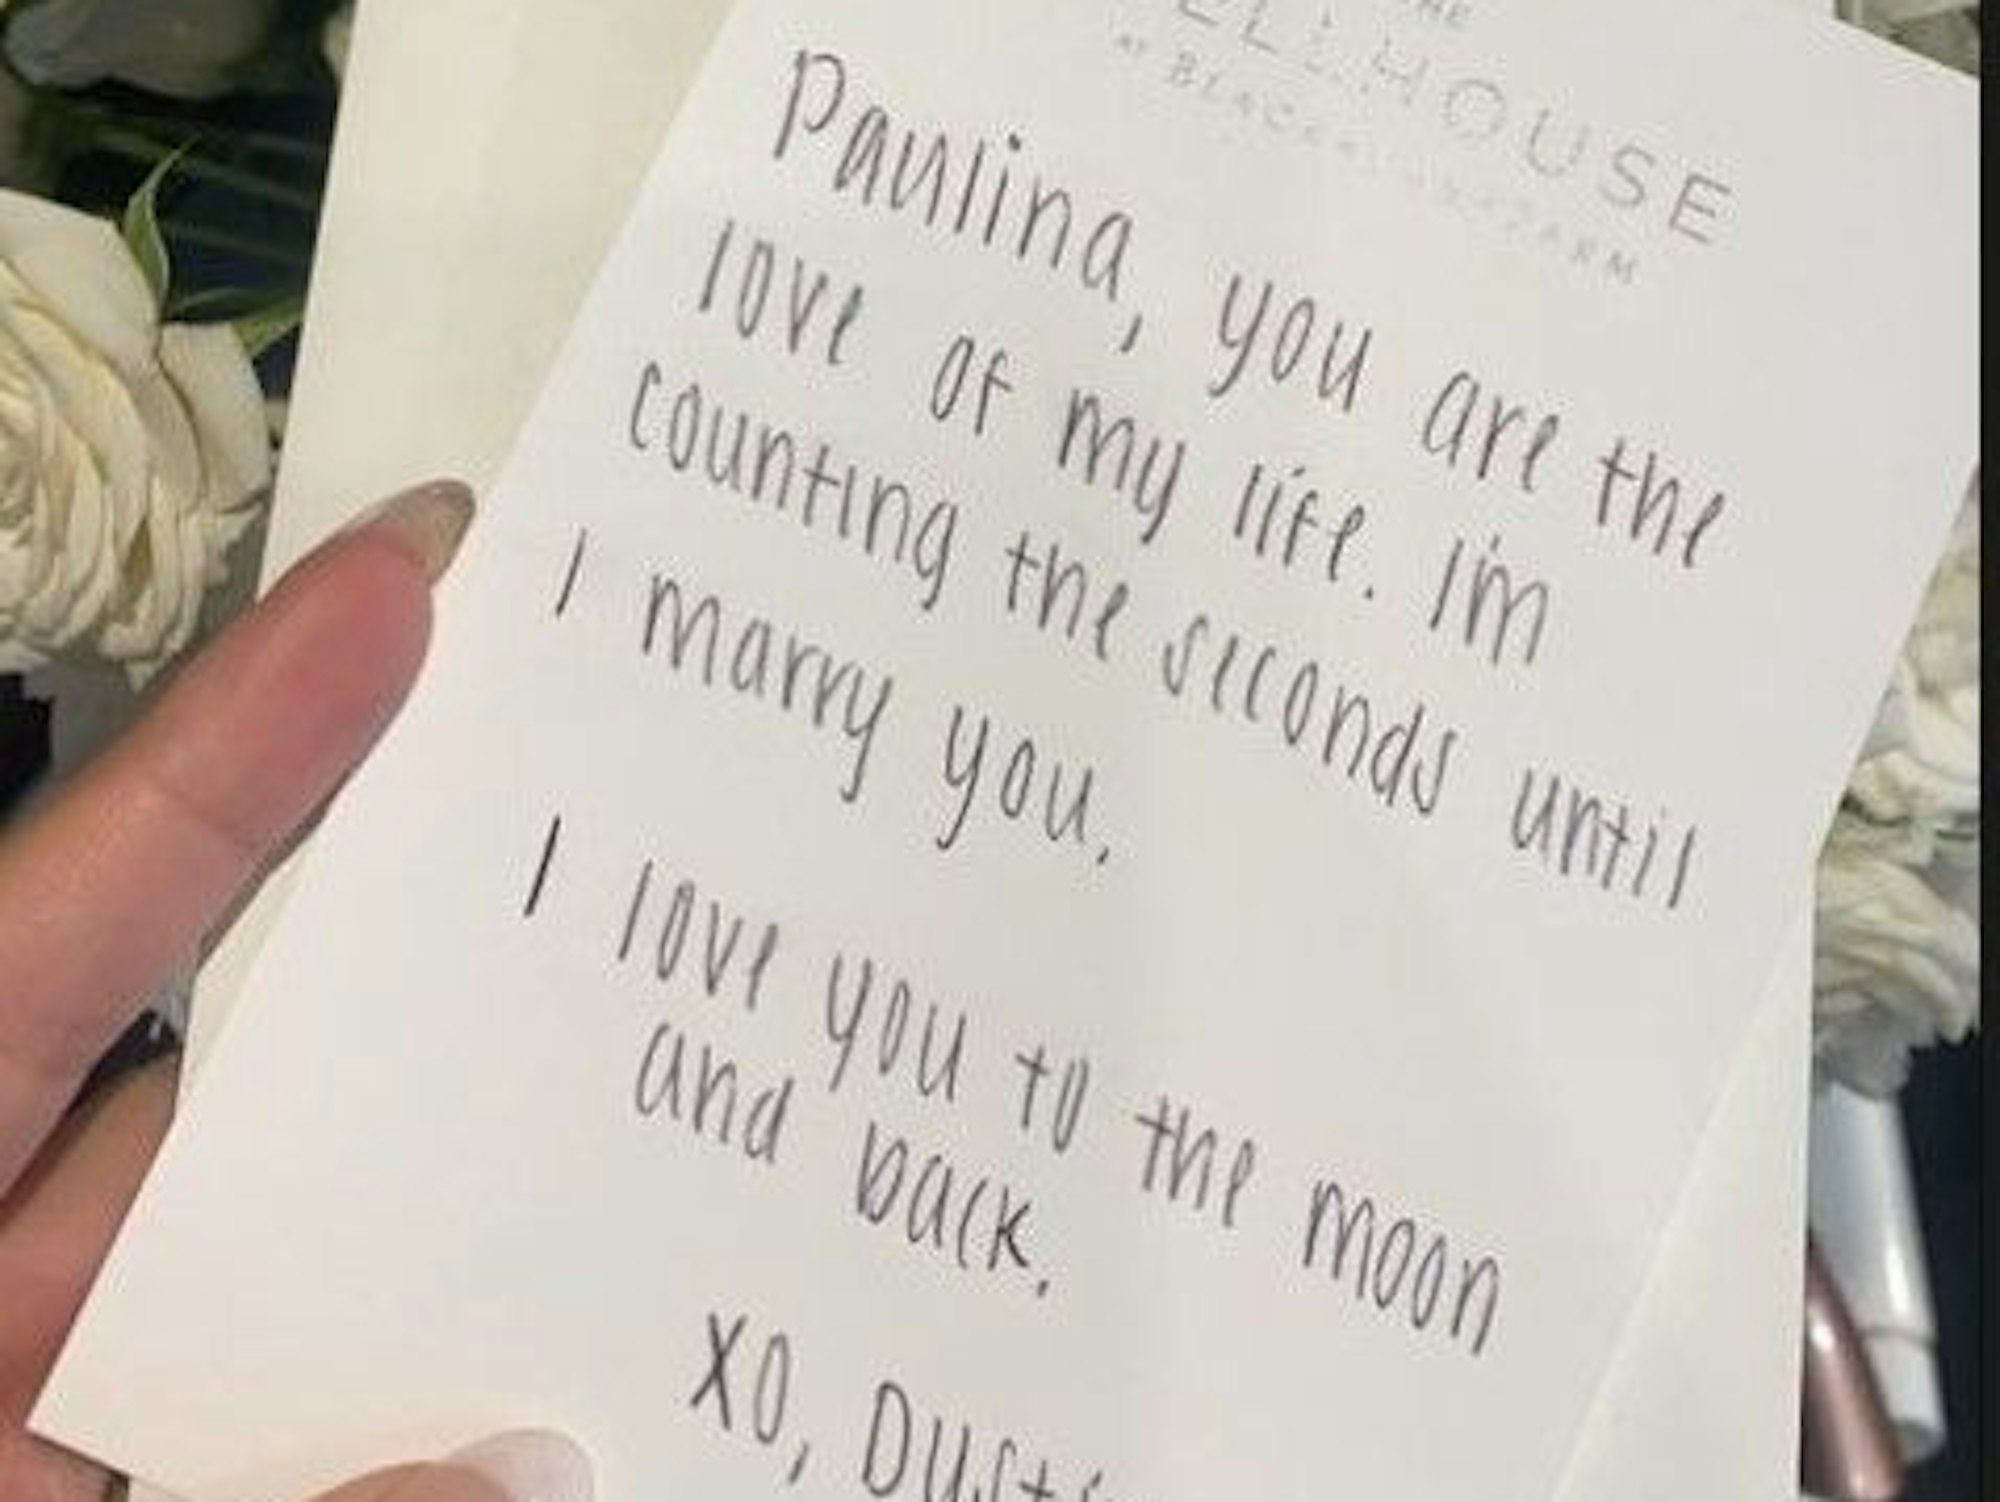 THE
ELLHOUSE
AT BLACKBERRY FARM
Paulina, you are the
love of my life. I'm
counting the seconds until
I marry you.
I love you to the moon
and back.
XO, Dusti